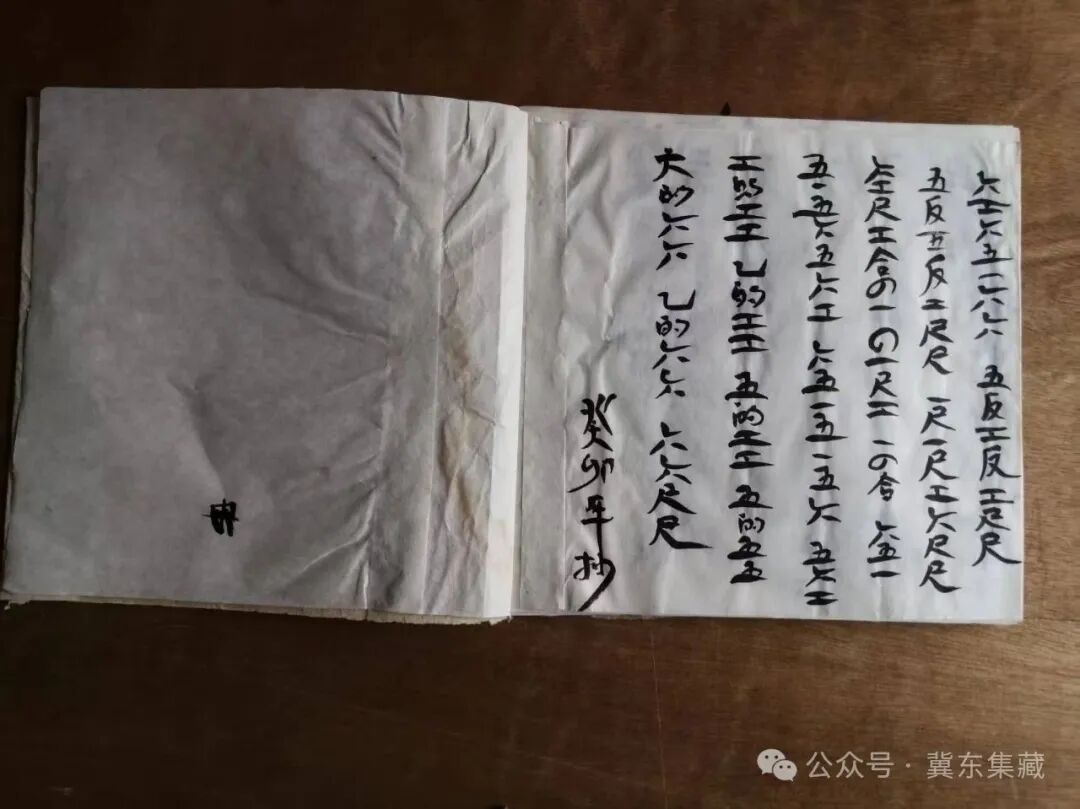 六工六五一六六 五反工反工尺尺
五反五反工尺尺 一尺一尺工六尺尺
六工尺工合の一の一尺工一の合 六五一
五一五六五六工 六五一五一五六 五六工
工的工工 乙的工工 五的工工 五的五五
大的六六 乙的六六 六六尺尺
癸卯年抄
公众号·冀东集藏